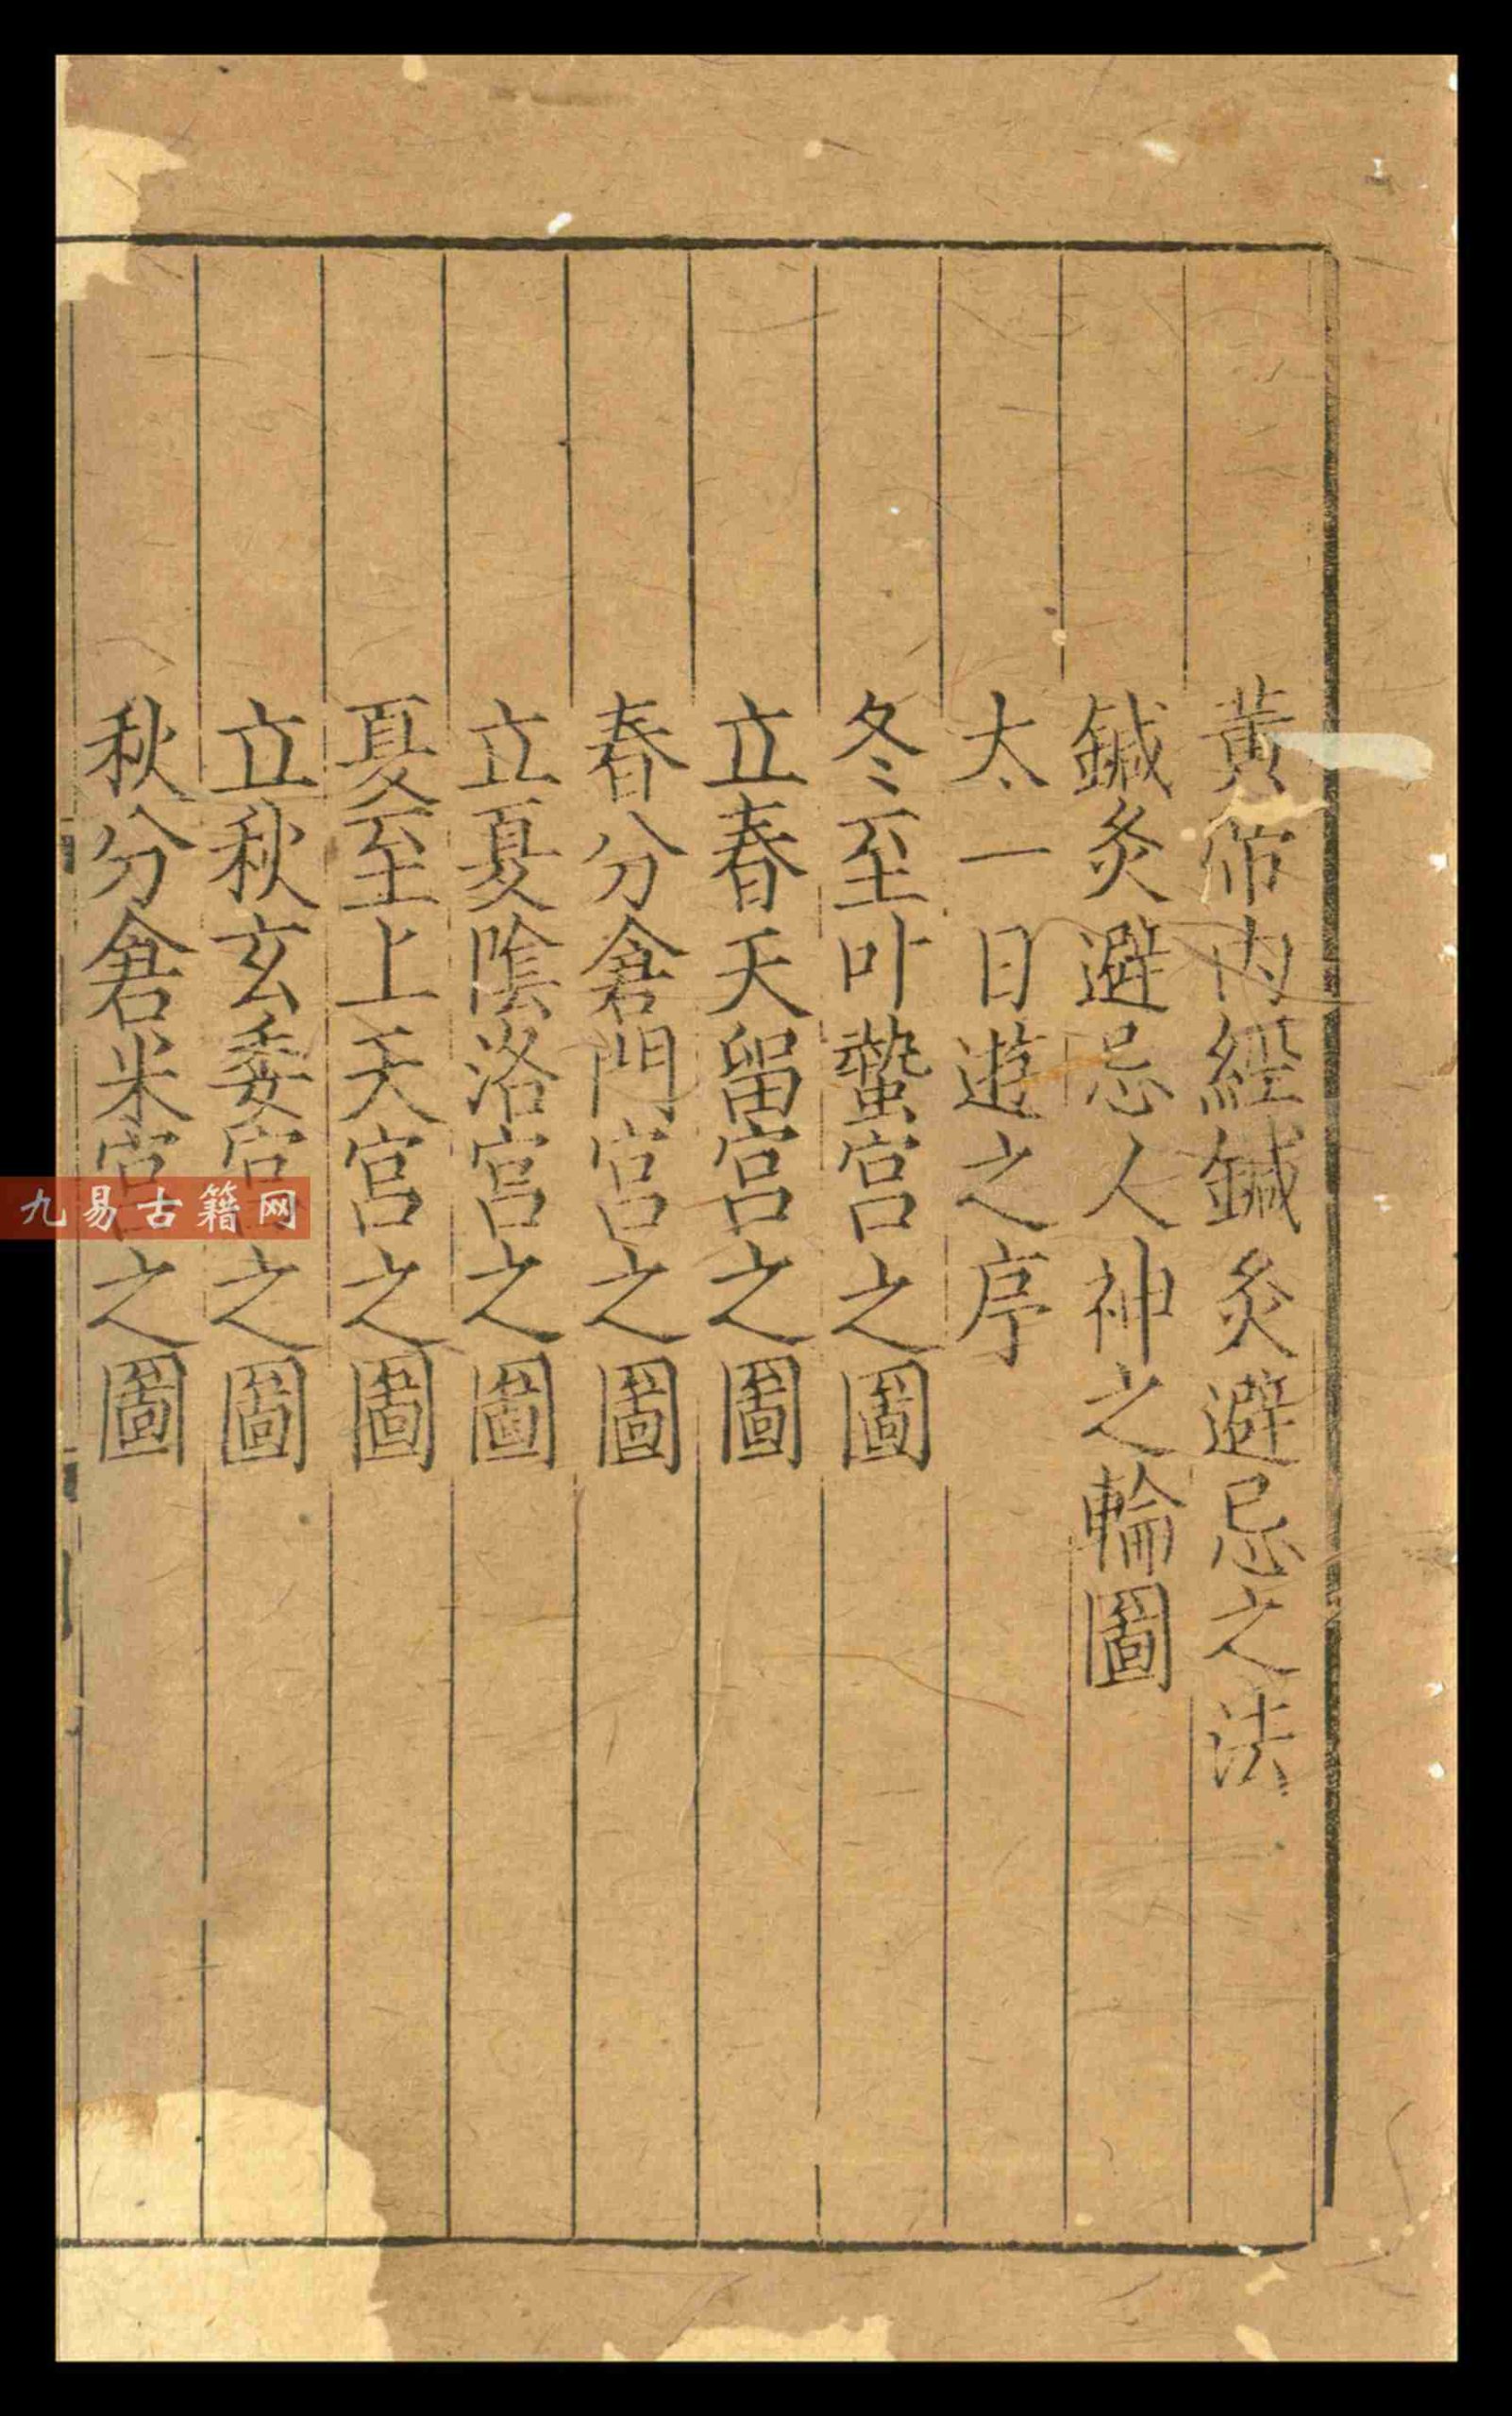 黃帝内經鍼灸避忌之法
鍼灸避忌人神之輪圖
太一日遊之序
冬至叶蟄宫之圖
立春天留宫之圖
春分倉門宫之圖
立夏隂洛宫之圖
夏至上天宫之圖
立秋玄委宫之圖
秋分倉米宫之圖
九易古籍网